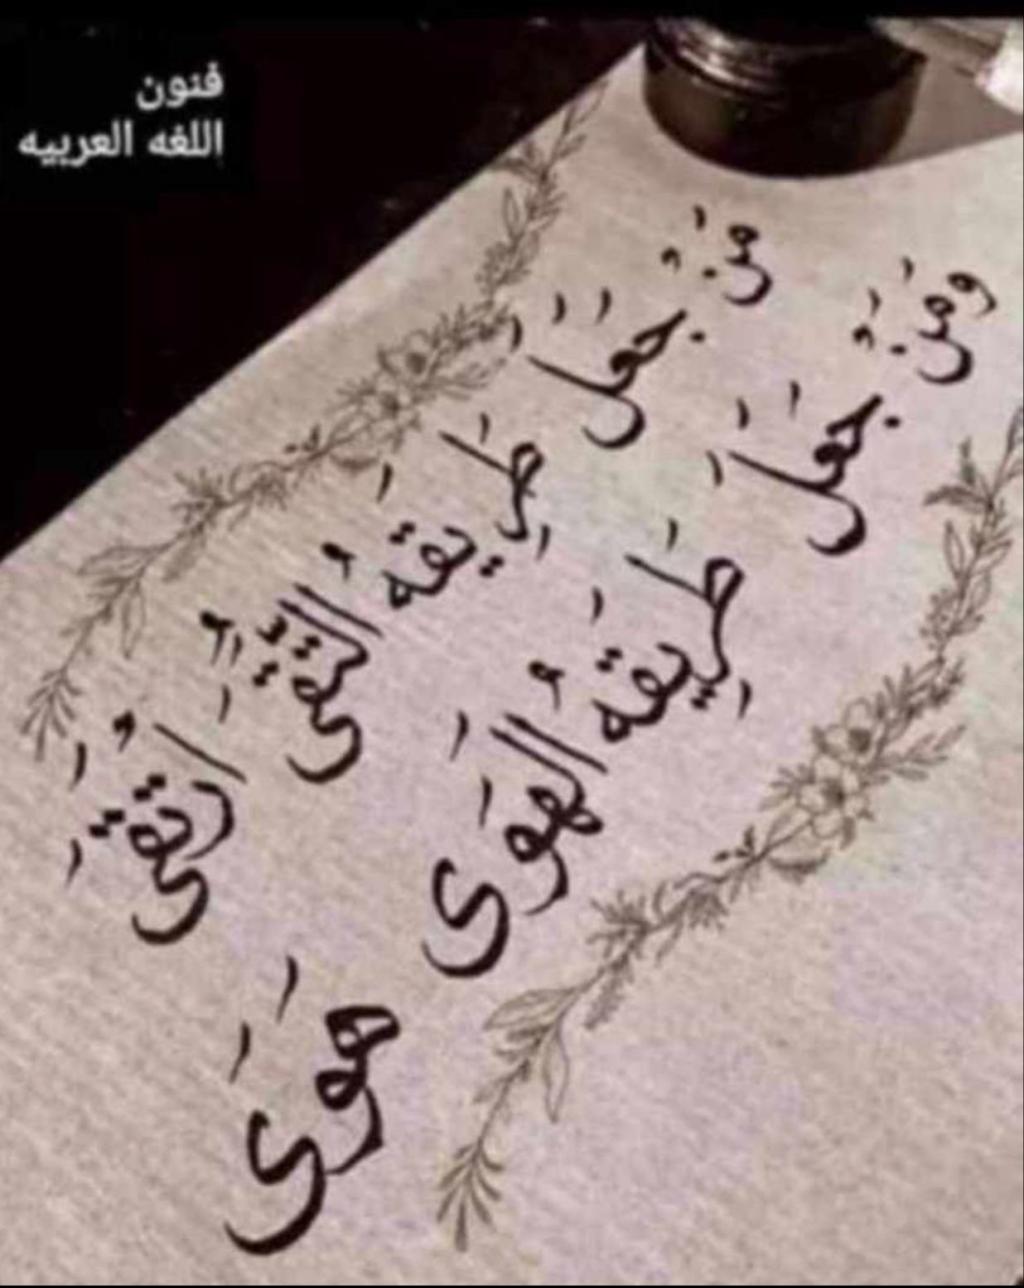 فنون
اللغه العربيه
مَنْ جَعَلَ طَرِيقَهُ التُّقَى ارْتَقَى
وَمَنْ جَعَلَ طَرِيقَهُ الهَوَى هَوَى